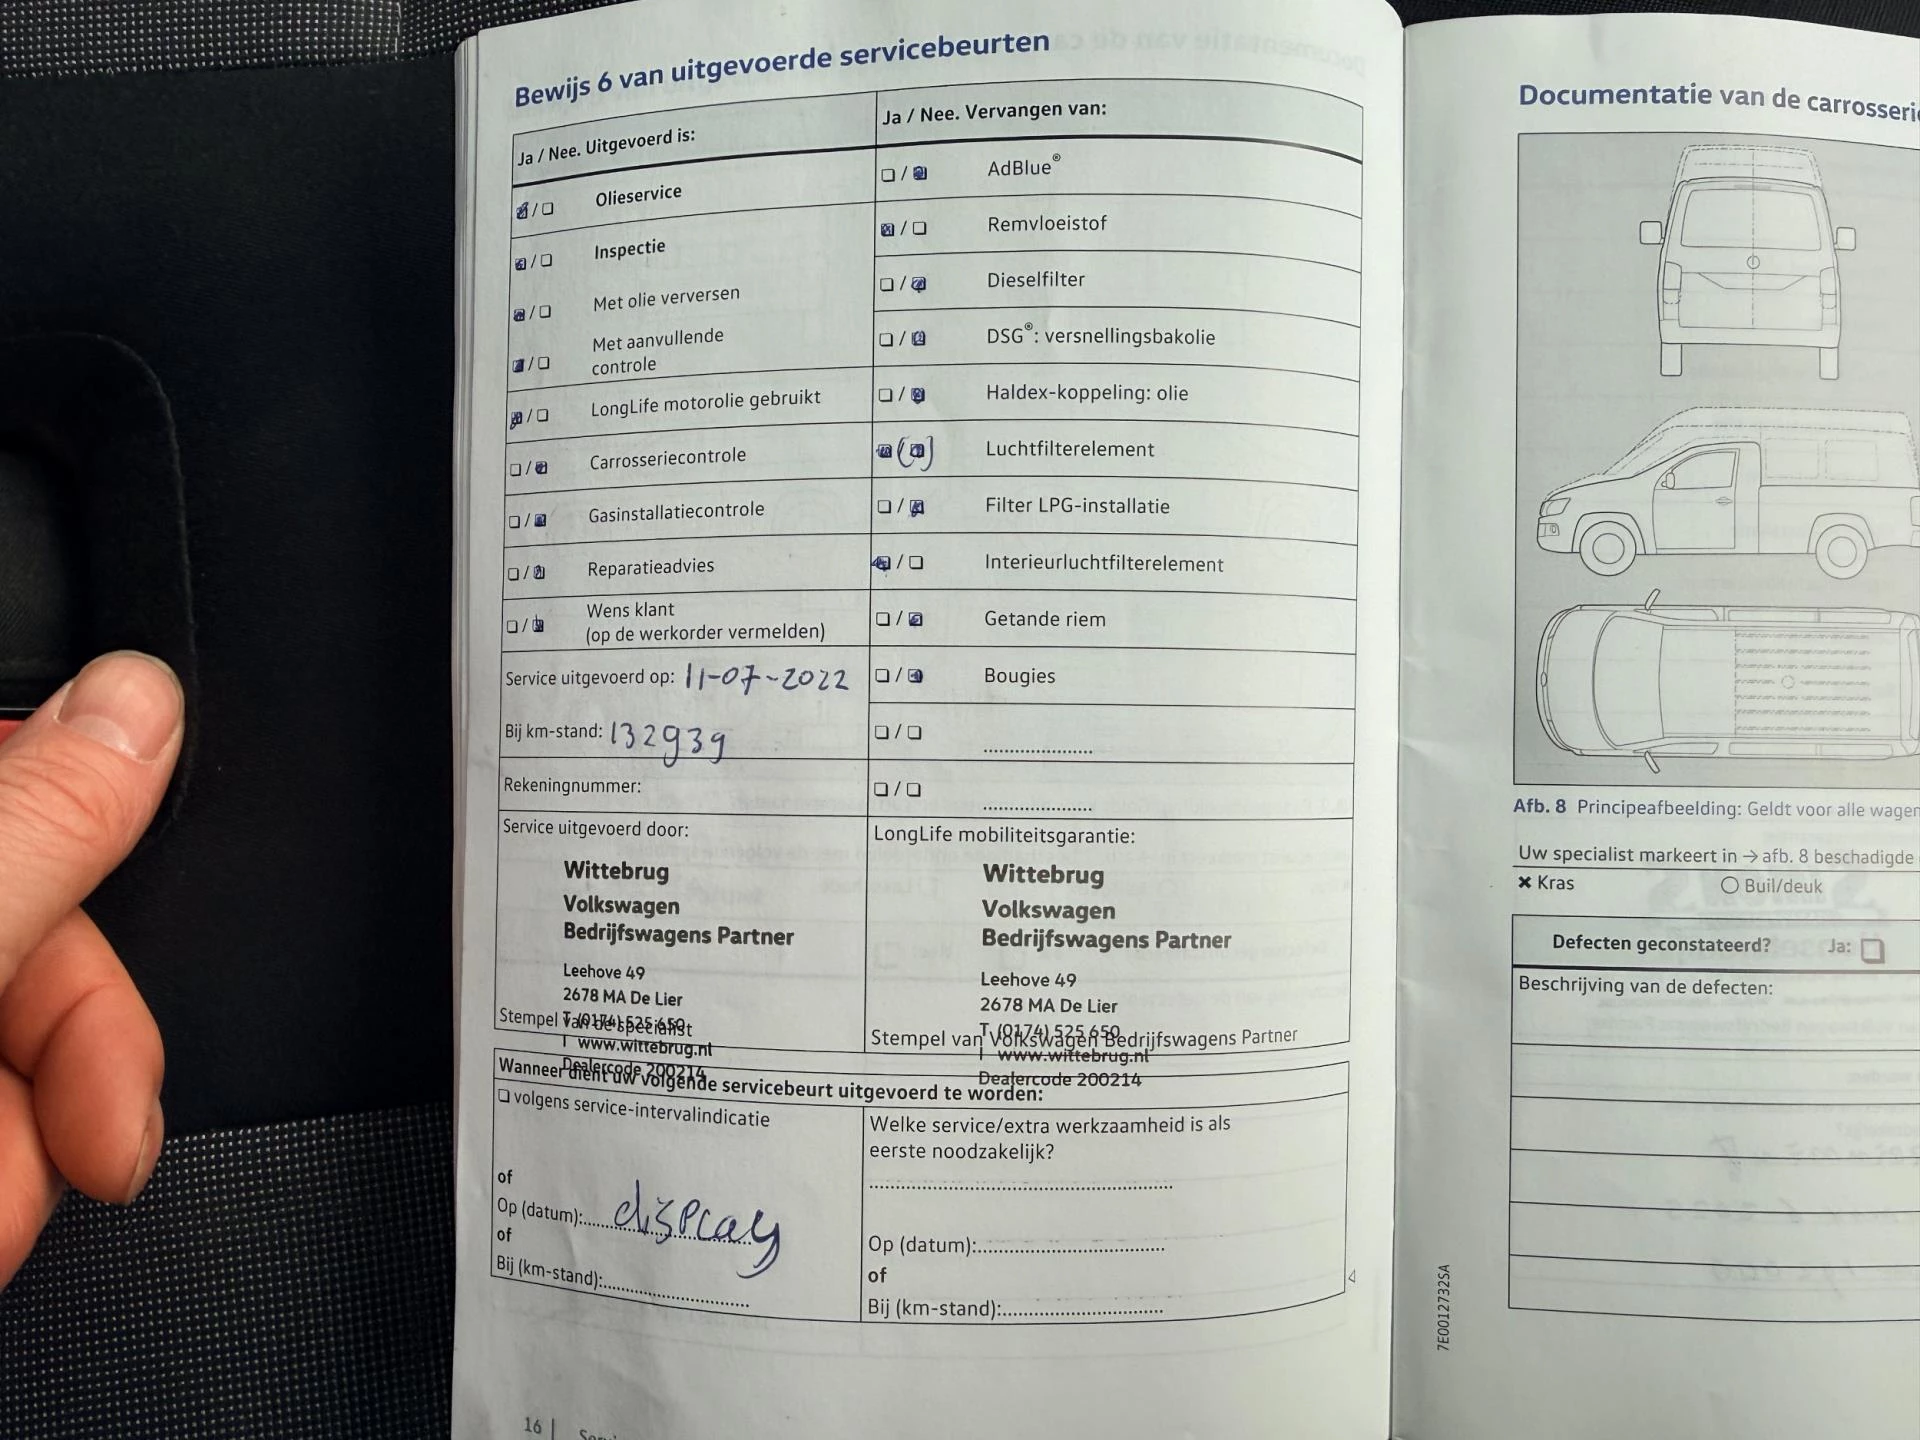 Bewijs 6 van uitgevoerde servicebeurten
Ja / Nee. Uitgevoerd is:
Olieservice
Inspectie
Met olie verversen
Met aanvullende
controle
LongLife motorolie gebruikt
Carrosseriecontrole
Gasinstallatiecontrole
Reparatieadvies
Wens klant
(op de werkorder vermelden)
Service uitgevoerd op: 11-07-2022
Bij km-stand: 132939
Rekeningnummer:
Ja / Nee. Vervangen van:
AdBlue®
Remvloeistof
Dieselfilter
DSG®: versnellingsbakolie
Haldex-koppeling: olie
Luchtfilterelement
Filter LPG-installatie
Interieurluchtfilterelement
Getande riem
Bougies
Service uitgevoerd door:
Wittebrug
Volkswagen
Bedrijfswagens Partner
Leehove 49
2678 MA De Lier
T (0174) 525 650
I www.wittebrug.nl
Dealercode 200214
Stempel van de specialist
LongLife mobiliteitsgarantie:
Wittebrug
Volkswagen
Bedrijfswagens Partner
Leehove 49
2678 MA De Lier
T (0174) 525 650
I www.wittebrug.nl
Dealercode 200214
Stempel van Volkswagen Bedrijfswagens Partner
Wanneer dient uw volgende servicebeurt uitgevoerd te worden:
volgens service-intervalindicatie
of
Op (datum): display
of
Bij (km-stand):
Welke service/extra werkzaamheid is als
eerste noodzakelijk?
Op (datum):
of
Bij (km-stand):
16
Documentatie van de carrosserie
Afb. 8 Principeafbeelding: Geldt voor alle wagen
Uw specialist markeert in → afb. 8 beschadigde
× Kras
○ Buil/deuk
Defecten geconstateerd? Ja:
Beschrijving van de defecten:
7E0012732SA